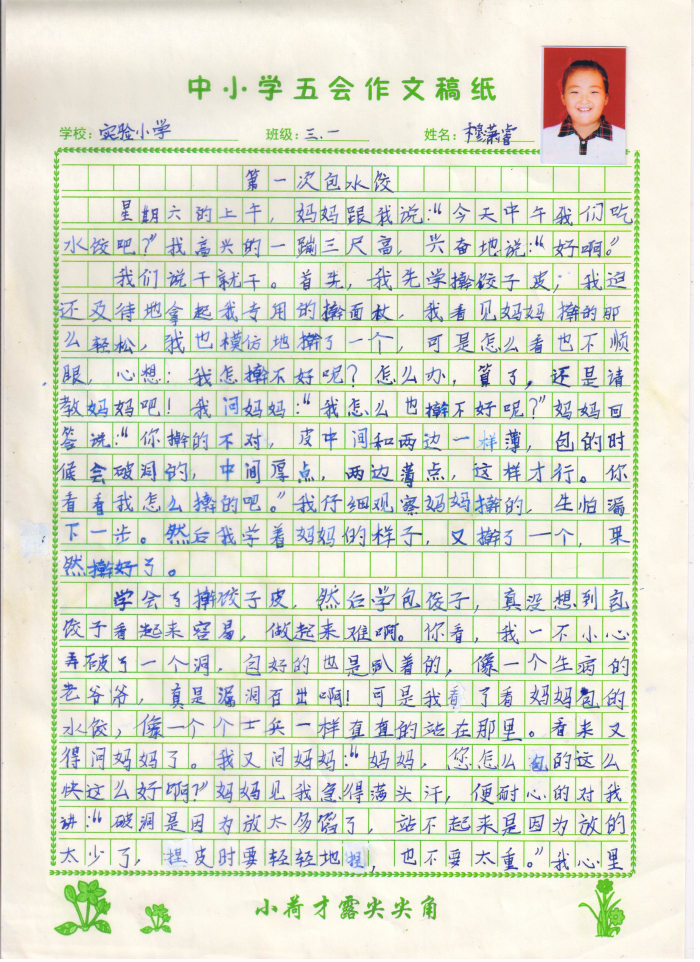 中小学五会作文稿纸
学校：实验小学 班级：三.一 姓名：穆潇睿
第一次包水饺
星期六的上午，妈妈跟我说：“今天中午我们吃
水饺吧？”我高兴的一蹦三尺高，兴奋地说：“好啊。”
我们说干就干。首先，我先学擀饺子皮；我迫
还及待地拿起我专用的擀面杖，我看见妈妈擀的那
么轻松，我也模仿地擀了一个，可是怎么看也不顺
眼，心想：我怎擀不好呢？怎么办，算了，还是请
教妈妈吧！我问妈妈：“我怎么也擀不好呢？”妈妈回
答说：“你擀的不对，皮中间和两边一样薄，包的时
候会破洞的，中间厚点，两边薄点，这样才行。你
看看我怎么擀的吧。”我仔细观察妈妈擀的，生怕漏
下一步。然后我学着妈妈的样子，又擀了一个，果
然擀好了。
学会了擀饺子皮，然后学包饺子，真没想到包
饺子看起来容易，做起来难啊。你看，我一不小心
弄破了一个洞，包好的也是趴着的，像一个生病的
老爷爷，真是漏洞百出啊！可是我看了看妈妈包的
水饺，像一个个士兵一样直直的站在那里。看来又
得问妈妈了。我又问妈妈：“妈妈，您怎么包的这么
快这么好啊？”妈妈见我急得满头汗，便耐心的对我
讲：“破洞是因为放太多馅了，站不起来是因为放的
太少了，捏皮时要轻轻地捏，也不要太重。”我心里
小荷才露尖尖角